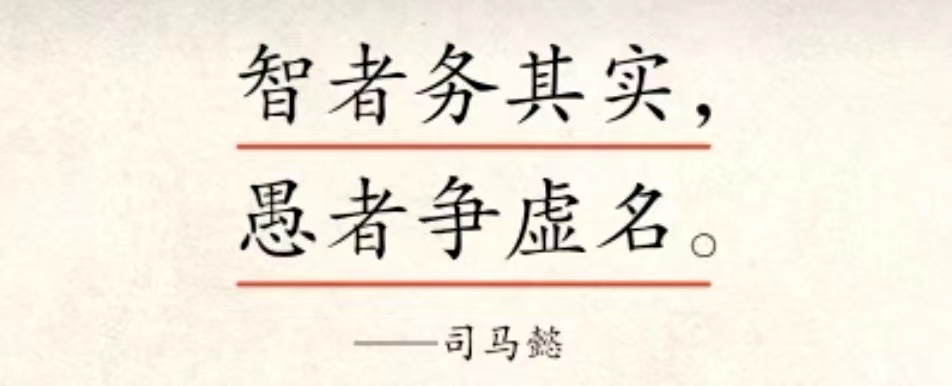 智者务其实，
愚者争虚名。
——司马懿